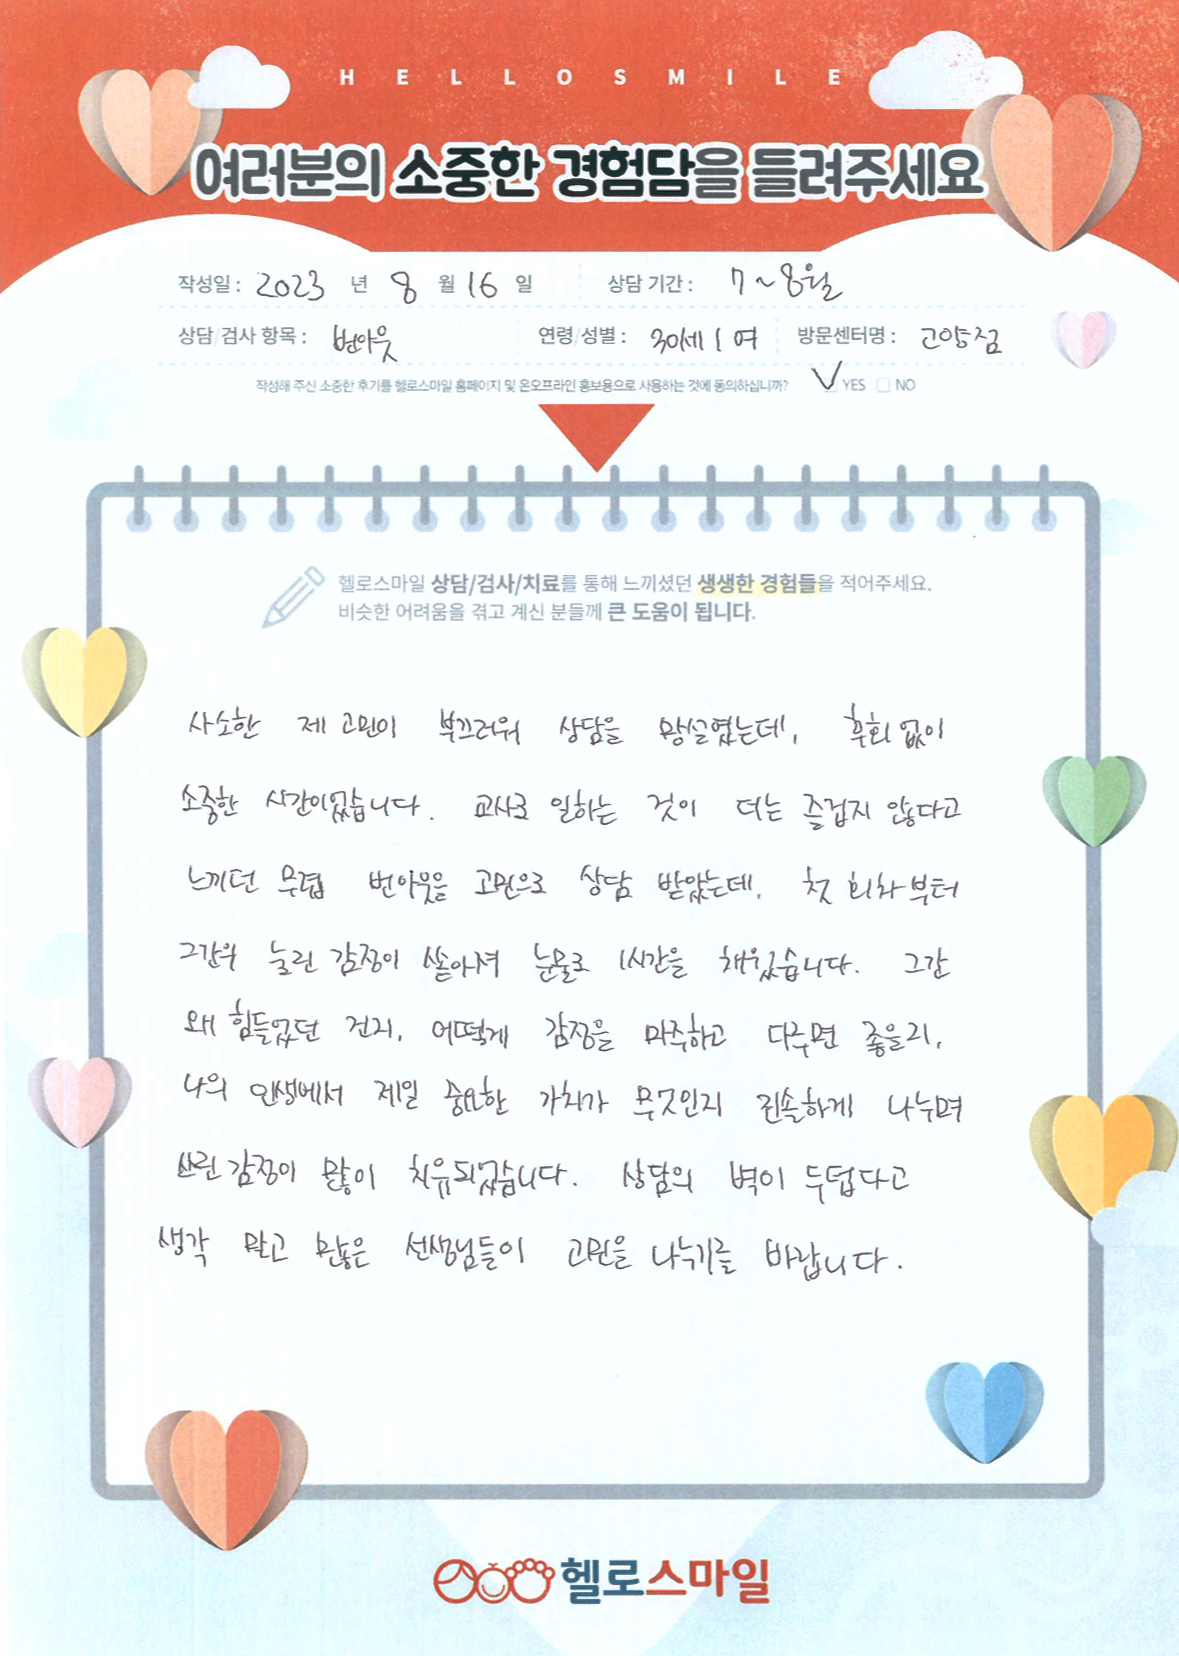 HELLOSMILE
여러분의 소중한 경험담을 들려주세요
작성일 : 2023 년 8 월 16 일 상담 기간 : 7~8월
상담/검사 항목 : 번아웃 연령/성별 : 30세 / 여 방문센터명 : 고양점
작성해 주신 소중한 후기를 헬로스마일 홈페이지 및 온오프라인 홍보용으로 사용하는 것에 동의하십니까? YES NO
헬로스마일 상담/검사/치료를 통해 느끼셨던 생생한 경험들을 적어주세요.
비슷한 어려움을 겪고 계신 분들께 큰 도움이 됩니다.
사소한 제 고민이 부끄러워 상담을 망설였는데, 후회 없이
소중한 시간이었습니다. 교사로 일하는 것이 더는 즐겁지 않다고
느끼던 무렵 번아웃을 고민으로 상담 받았는데, 첫 회차부터
그간의 눌린 감정이 쏟아져 눈물로 1시간을 채웠습니다. 그간
왜 힘들었던 건지, 어떻게 감정을 마주하고 다루면 좋을지,
나의 인생에서 제일 중요한 가치가 무엇인지 진솔하게 나누며
쓰린 감정이 많이 치유되었습니다. 상담의 벽이 두텁다고
생각 말고 많은 선생님들이 고민을 나누기를 바랍니다.
헬로스마일